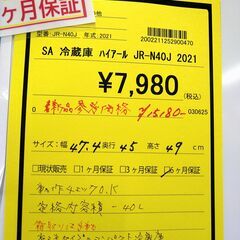 ヶ月保証
型番:JR-N40J 年式:2021
2002211252900470
SA 冷蔵庫 ハイアール JR-N40J 2021
¥7,980
(税込)
新品参考価格 ¥15180-
030625
サイズ 幅 47.4 奥行 45 高さ 49 cm
□現状販売 □1ヶ月保証 □6ヶ月保証
動作チェックO.K
定格内容積-40L